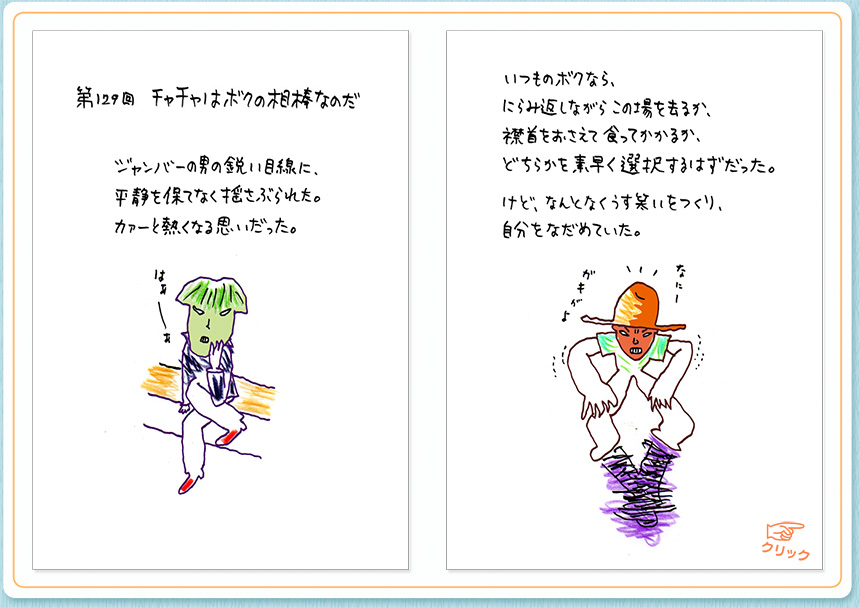 第129回 チャチャはボクの相棒なのだ
ジャンバーの男の鋭い目線に、
平静を保てなく揺さぶられた。
カァーと熱くなる思いだった。
はぁーぁ
いつものボクなら、
にらみ返しながらこの場を去るか、
襟首をおさえて食ってかかるか、
どちらかを素早く選択するはずだった。
けど、なんとなくうす笑いをつくり、
自分をなだめていた。
なにー
ガキがよ
クリック